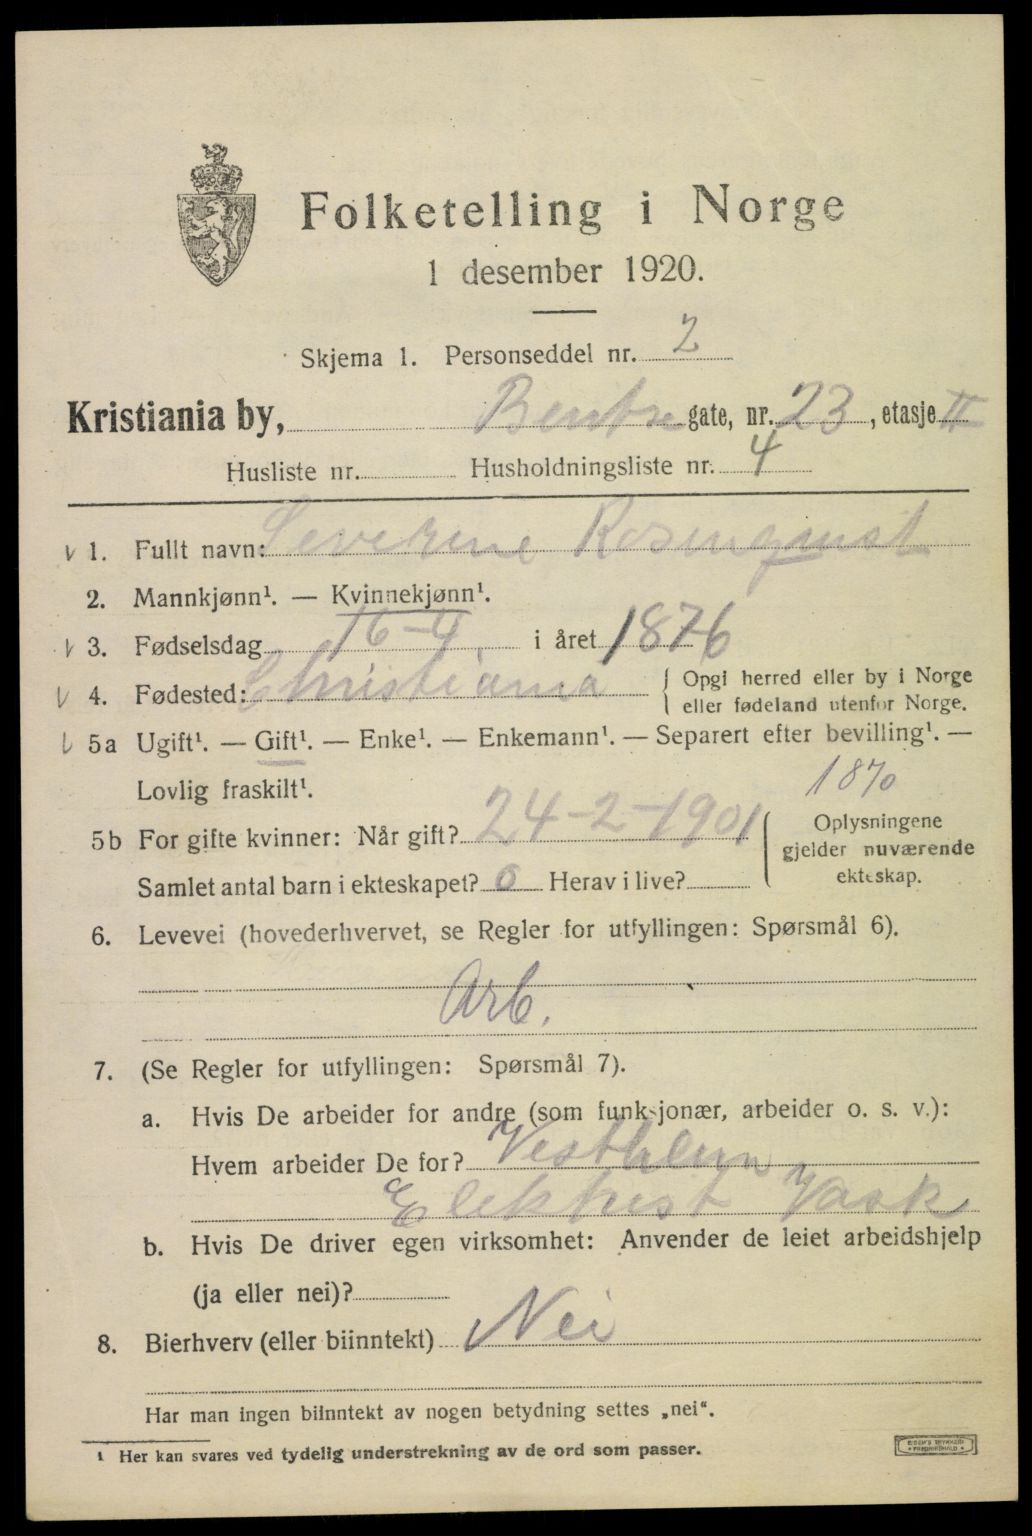 Folketelling i Norge
1 desember 1920.
Skjema 1. Personseddel nr. 2
Kristiania by, Bentse gate, nr. 23, etasje II
Husliste nr. Husholdningsliste nr. 4
1. Fullt navn: Severine Rosenqvist
2. Mannkjønn¹. — Kvinnekjønn¹.
3. Fødselsdag 16-9 i året 1876
4. Fødested: Christiania { Opgi herred eller by i Norge
eller fødeland utenfor Norge.
5a Ugift¹. — Gift¹. — Enke¹. — Enkemann¹. — Separert efter bevilling¹. —
Lovlig fraskilt¹. 1870
5b For gifte kvinner: Når gift? 24-2-1901
Samlet antal barn i ekteskapet? 0 Herav i live?
{ Oplysningene
gjelder nuværende
ekteskap.
6. Levevei (hovederhvervet, se Regler for utfyllingen: Spørsmål 6).
Arb.
7. (Se Regler for utfyllingen: Spørsmål 7).
a. Hvis De arbeider for andre (som funksjonær, arbeider o. s. v.):
Hvem arbeider De for?
Vask
b. Hvis De driver egen virksomhet: Anvender de leiet arbeidshjelp
(ja eller nei)?
8. Bierhverv (eller biinntekt) Nei
Har man ingen biinntekt av nogen betydning settes „nei“.
¹ Her kan svares ved tydelig understrekning av de ord som passer.